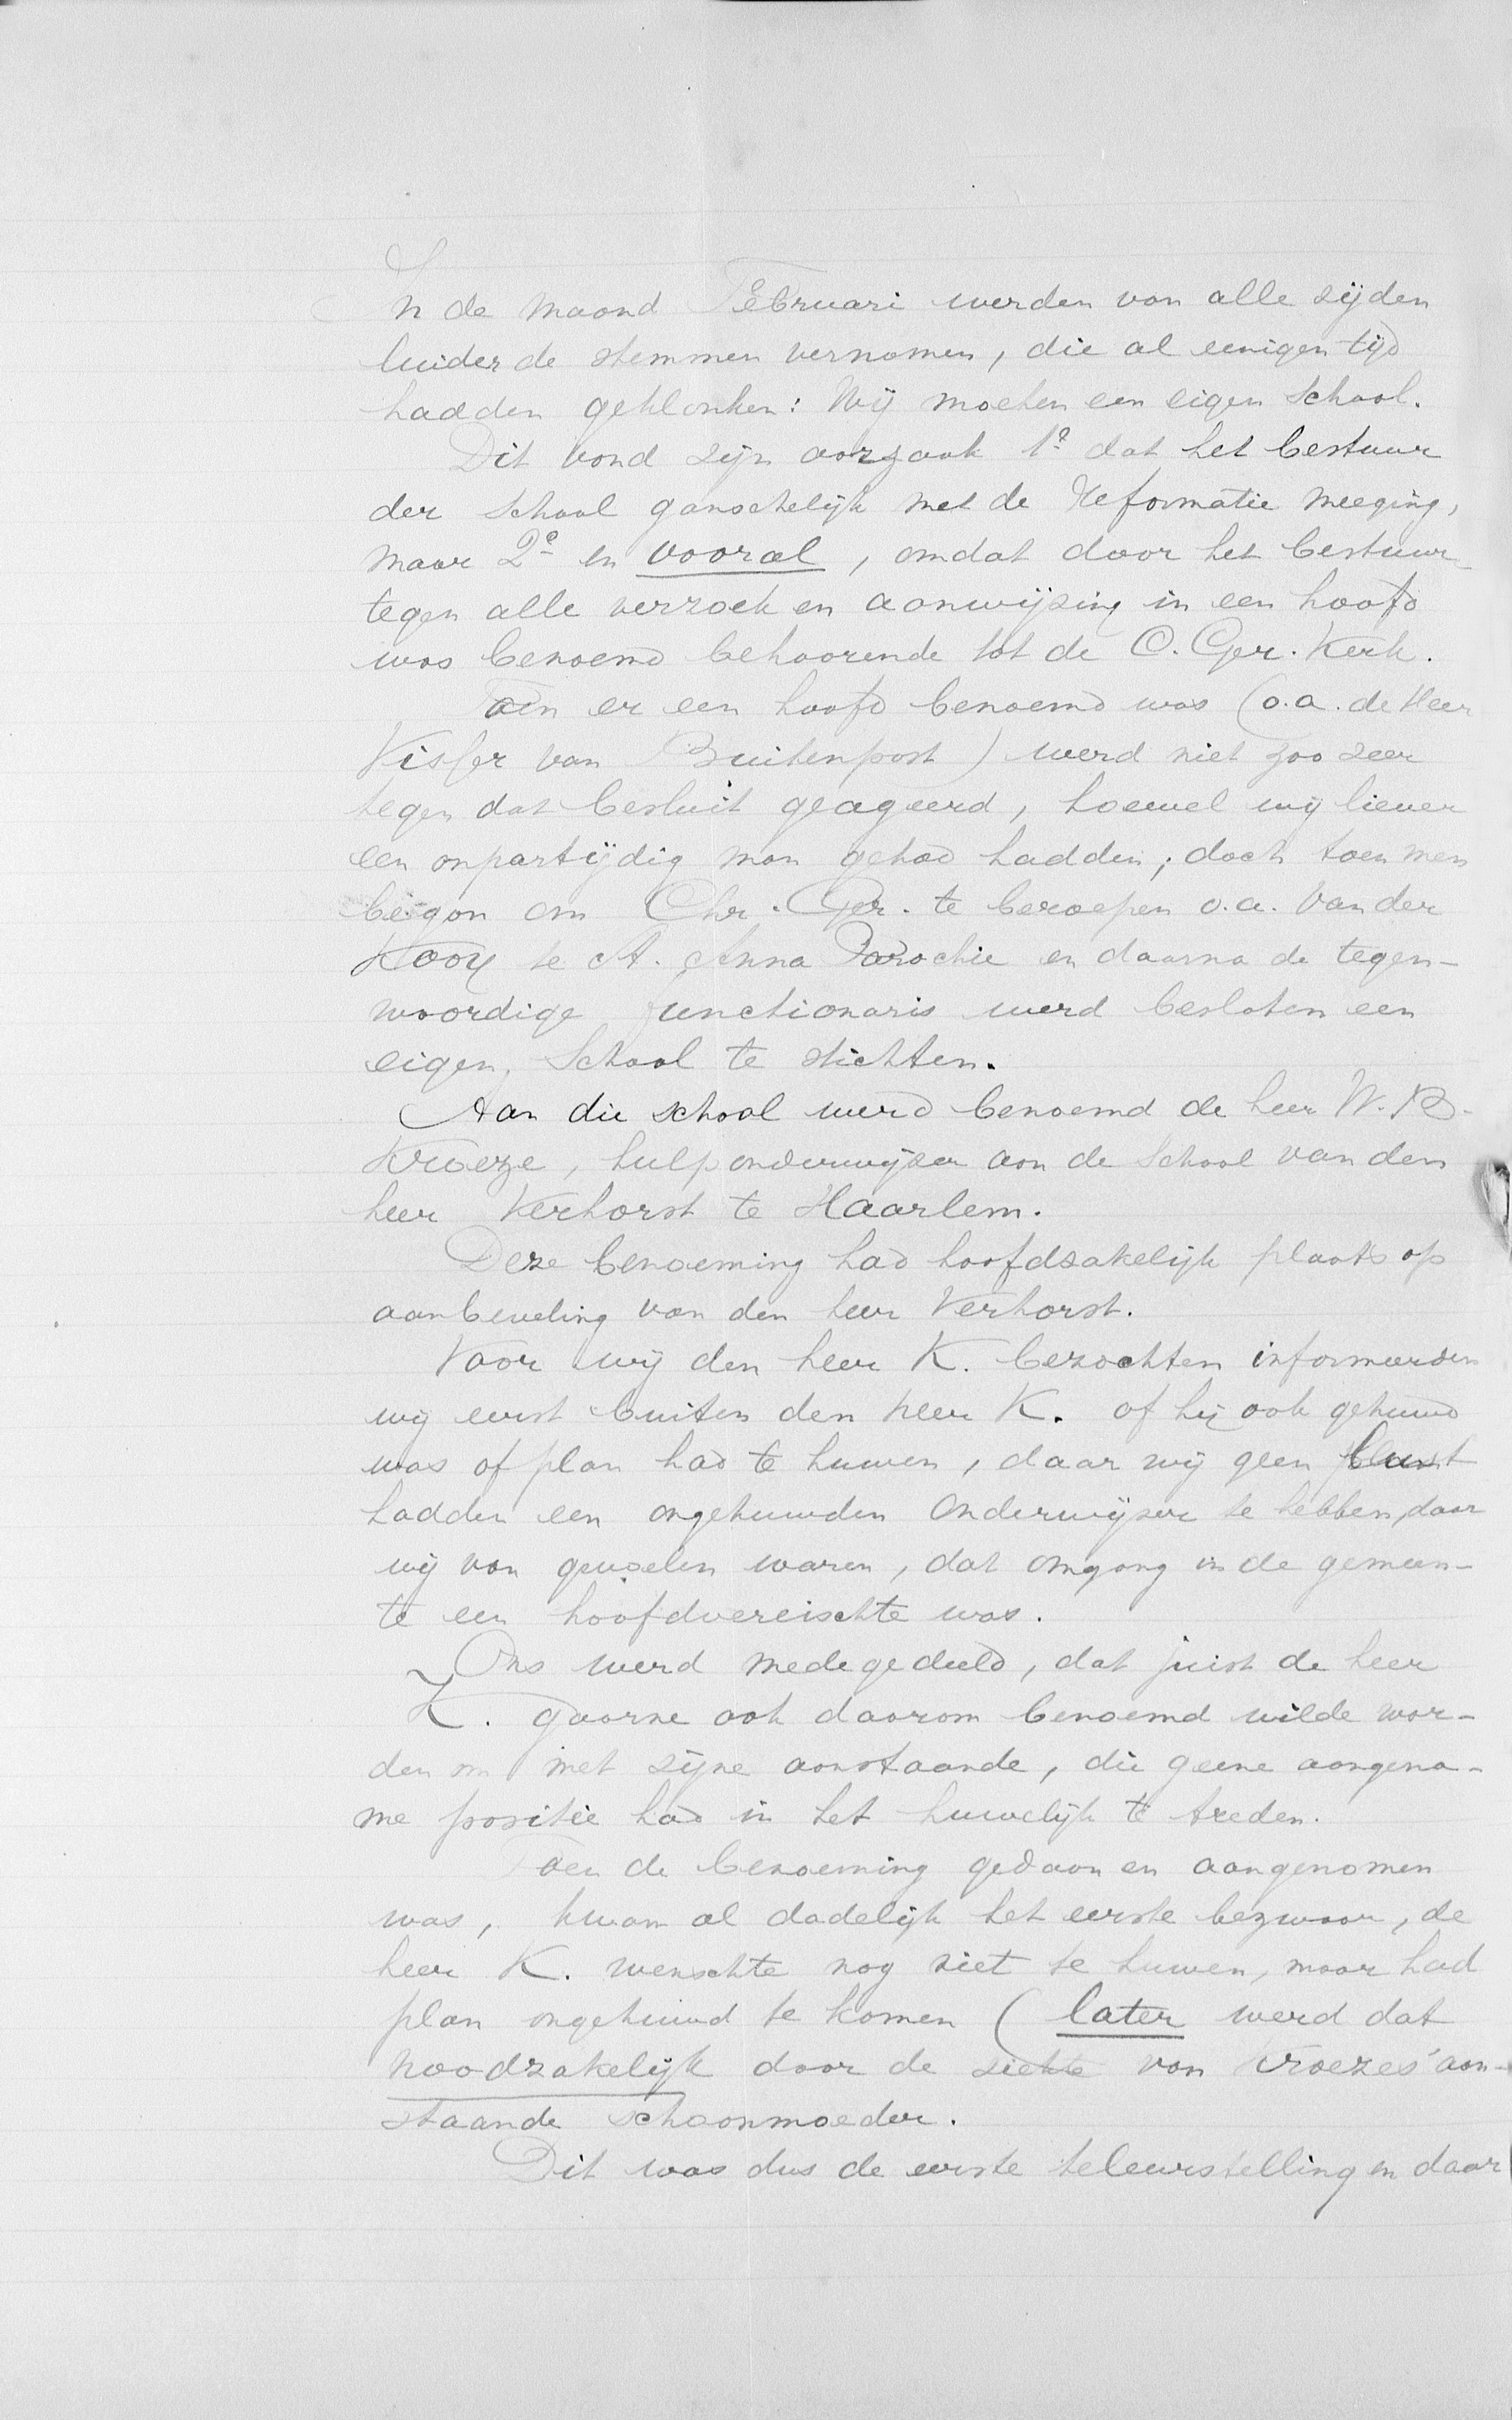 In de maand Februari werden van alle zijden
luider de stemmen vernomen, die al eenigen tijd
hadden geklonken: Wij moeten een eigen school.
Dit vond zijn oorzaak 1e dat het bestuur
der school ganschelijk met de Reformatie meeging,
maar 2e en vooral, omdat door het bestuur
tegen alle verzoek en aanwijzing in een hoofd
was benoemd behoorende tot de C. Ger. Kerk.
Toen er een hoofd benoemd was (o.a. de Heer
Visser van Buitenpost) werd niet zoo zeer
tegen dat besluit geageerd, hoewel wij liever
een onpartijdig man gehad hadden; doch toen men
begon om Chr. Ger. te beroepen o.a. Van der
Kooy te St. Anna Parochie en daarna de tegen-
woordige functionaris werd besloten een
eigen School te stichten.
Aan die school werd benoemd de heer W. B.
Kroeze, hulponderwijzer aan de School van den
heer Verhorst te Haarlem.
Deze benoeming had hoofdzakelijk plaats op
aanbeveling van den heer Verhorst.
Voor wij den heer K. bezochten informeerden
wij eerst buiten den heer K. of hij ook gehuwd
was of plan had te huwen, daar wij geen lust
hadden een ongehuwden Onderwijzer te hebben, daar
wij van gevoelen waren, dat omgang in de gemeen-
te een hoofdvereischte was.
Ons werd medegedeeld, dat juist de heer
K. gaarne ook daarom benoemd wilde wor-
den om met zijne aanstaande, die geene aangena-
me positie had in het huwelijk te treden.
Toen de benoeming gedaan en aangenomen
was, kwam al dadelijk het eerste bezwaar, de
heer K. wenschte nog niet te huwen, maar had
plan ongehuwd te komen (later werd dat
noodzakelijk door de ziekte van Kroezes' aan-
staande schoonmoeder.
Dit was dus de eerste teleurstelling en daar